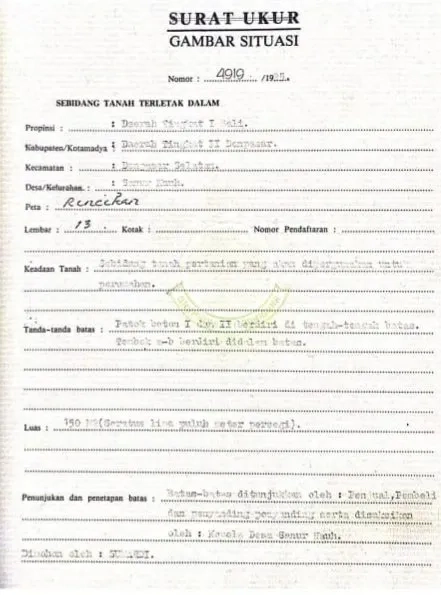 SURAT UKUR
GAMBAR SITUASI
Nomor : 4919 /19
SEBIDANG TANAH TERLETAK DALAM
Propinsi : : Daerah Tingkat I Bali.
Kabupaten/Kotamadya : : Daerah Tingkat II Denpasar.
Kecamatan : : Denpasar Selatan.
Desa/Kelurahan. : : Sanur Kauh.
Peta : Rincikan
Lembar : 13 Kotak : Nomor Pendaftaran :
Keadaan Tanah : Sebidang tanah pertanian yang akan dipergunakan untuk
perumahan.
Tanda-tanda batas : Patok beton I dan II berdiri di tengah-tengah batas.
Tembok a-b berdiri didalam batas.
Luas : 150 M2(Seratus lima puluh meter persegi).
Penunjukan dan penetapan batas : Batas-batas ditunjukkan oleh : Penjual,Pembeli
dan penyanding-penyanding serta disaksikan
oleh : Kepala Desa Sanur Kauh.
Dimohon oleh :